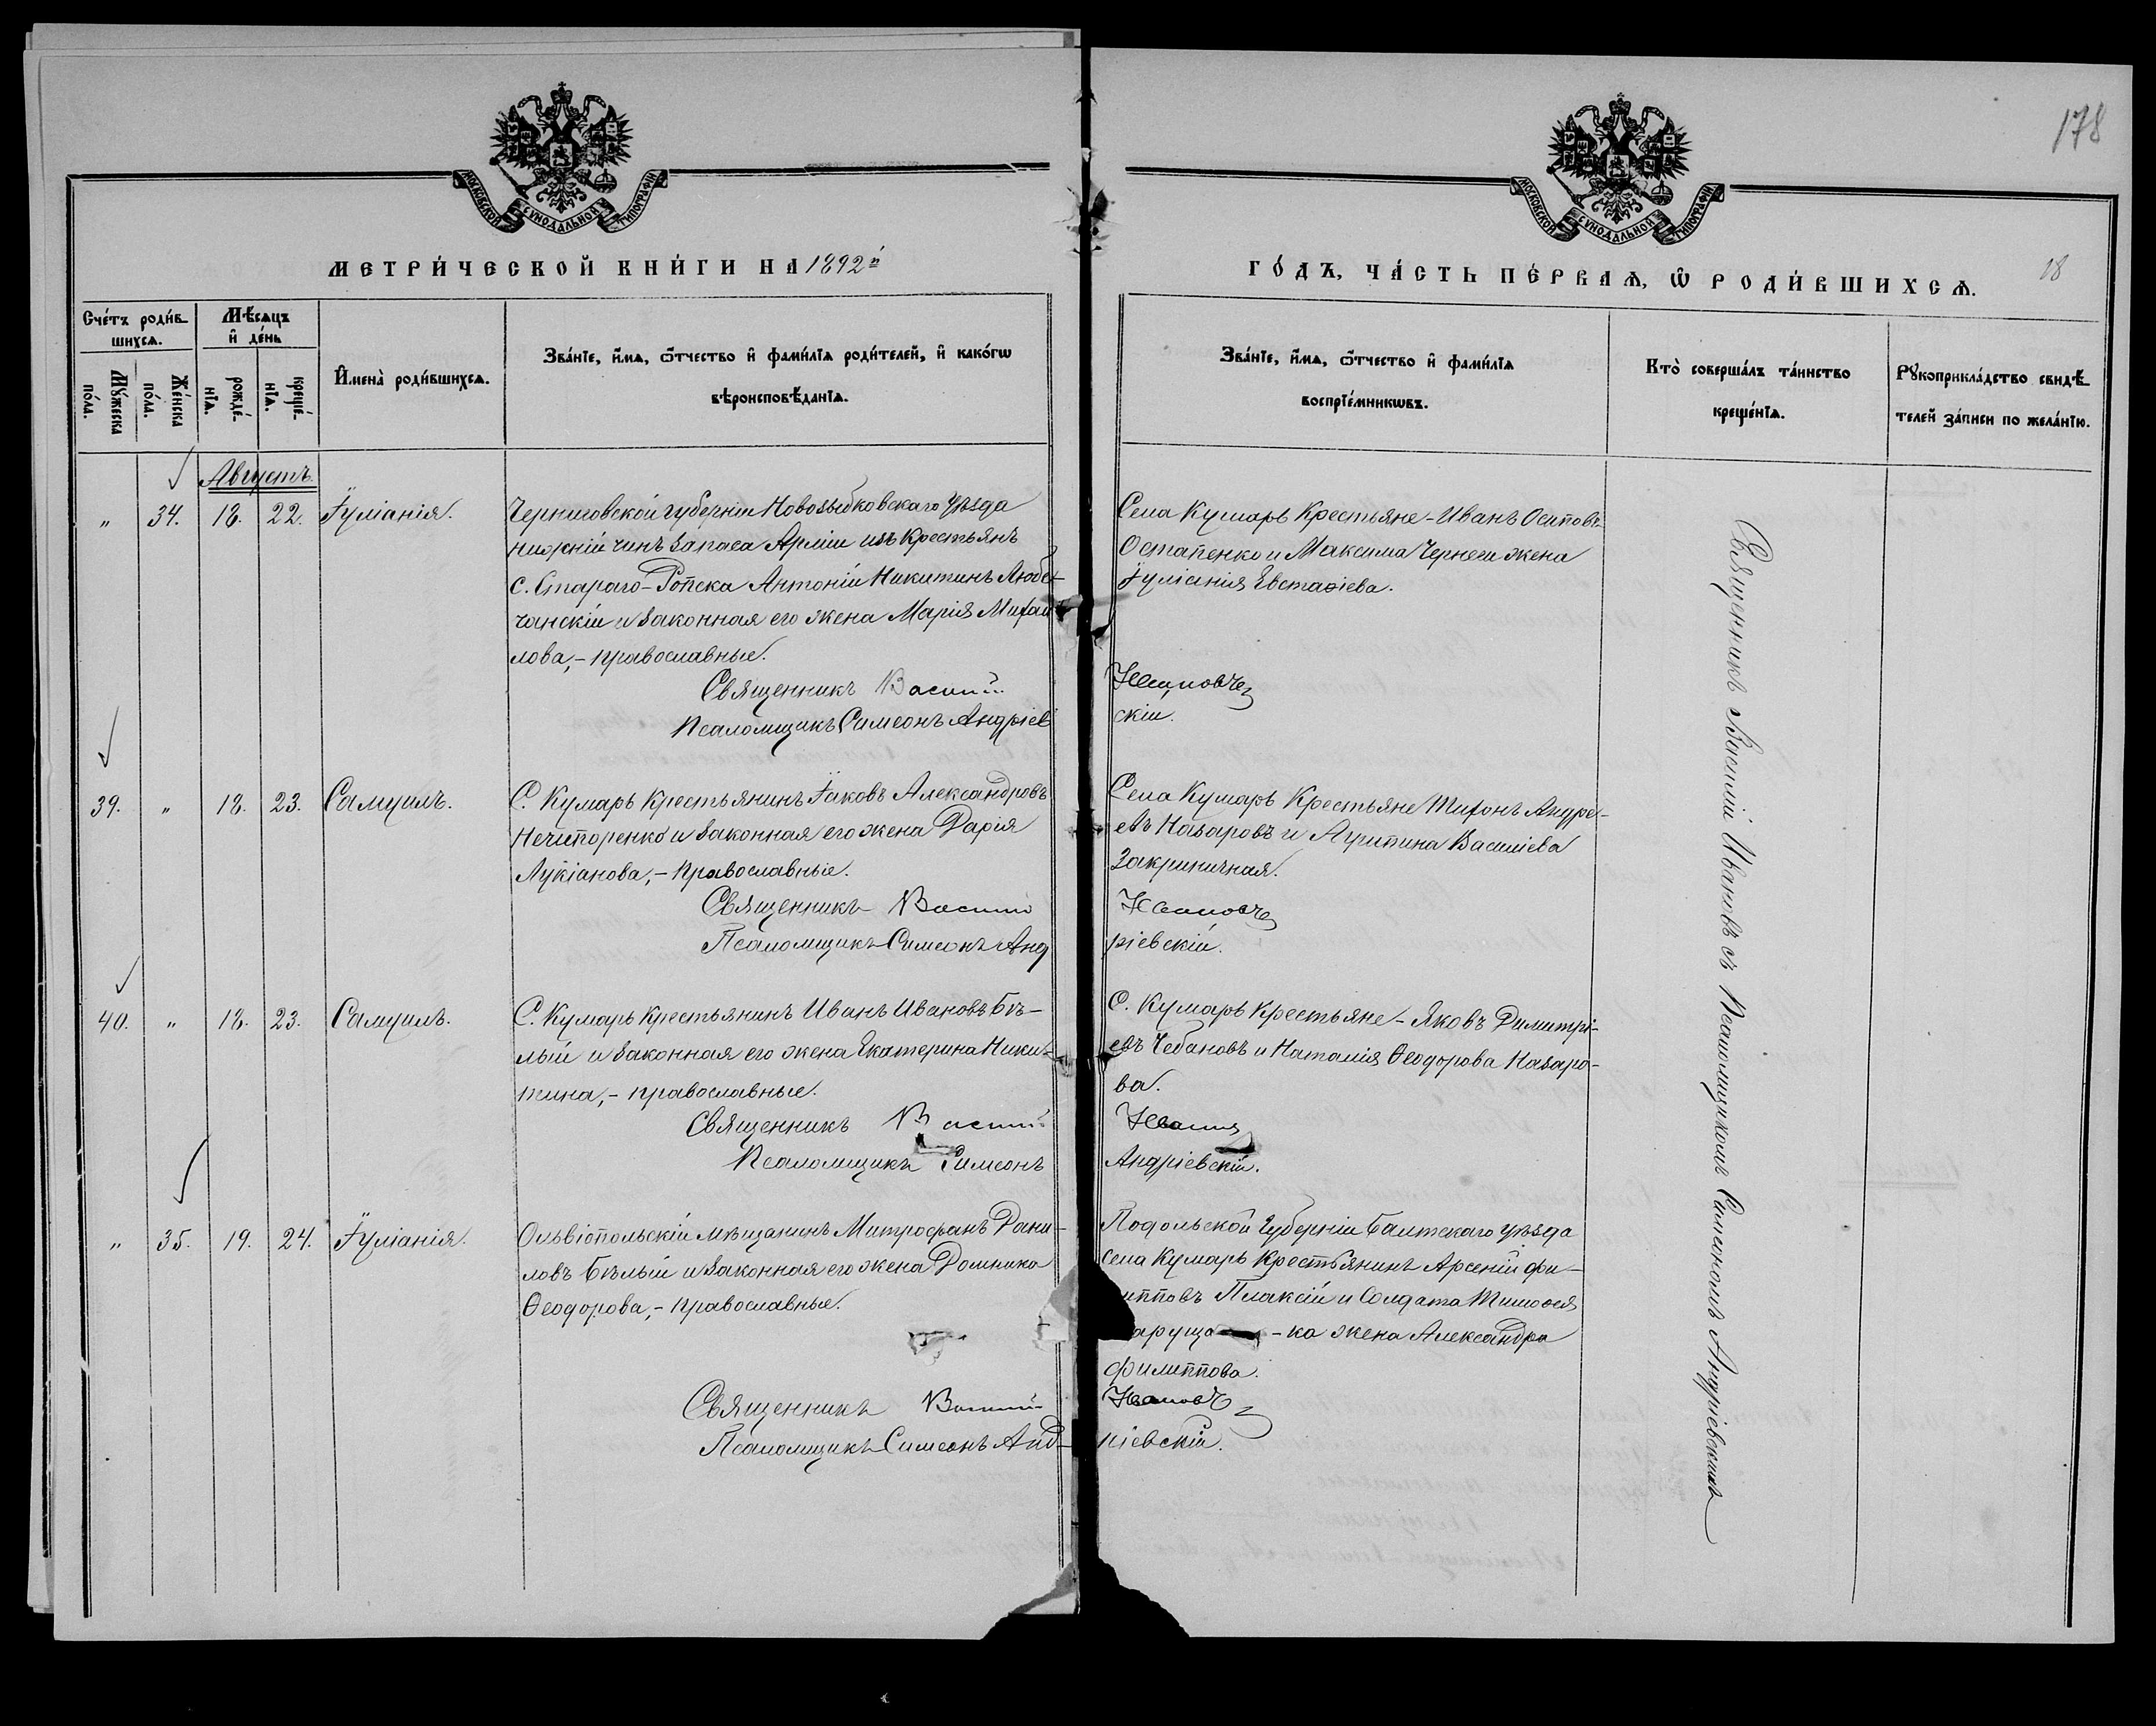 178
МОСКОВСКОЙ СѴНОДАЛЬНОЙ ТИПОГРАФІИ
МОСКОВСКОЙ СѴНОДАЛЬНОЙ ТИПОГРАФІИ
МЕТРИ́ЧЕСКОЙ КНИ́ГИ НА 1892й
ГО́ДЪ, ЧА́СТЬ ПЕ́РВАѦ, Ѡ҆ РОДИ́ВШИХСѦ.
18
Сче́тъ роди́в-
шихсѧ.
Мѣ́сѧцъ
и҆ де́нь
Мꙋ́жеска
по́ла.
Же́нска
по́ла.
рожде́-
нїѧ.
креще́-
нїѧ.
И҆мена̀ роди́вшихсѧ.
Зва́нїе, и҆́мѧ, ѻ҆́тчество и҆ фами́лїѧ роди́телей, и҆ како́гѡ
вѣроисповѣ́данїѧ.
Зва́нїе, и҆́мѧ, ѻ҆́тчество и҆ фами́лїѧ
воспрїе́мникѡвъ.
Кто̀ соверша́лъ та́инство
креще́нїѧ.
Рꙋкоприкла́дство свидѣ́-
телей за́писи по жела́нїю.
Августъ
„ 34. 18. 22. Іуліанія.
Черниговской губерніи Новозыбковскаго уѣзда
нижній чинъ запаса Арміи изъ крестьянъ
с. Стараго-Ропска Антоній Никитинъ Любе-
чанскій и законная его жена Марія Михаи-
лова,- православные.
Священникъ Василій
Псаломщикъ Симеонъ Андріев
Села Кумарь Крестьяне-Иванъ Осиповъ
Остапенко и Максима Чернеги жена
Іуліанія Евстафіева.
Ивановъ
скій.
39. „ 18. 23. Самуилъ.
С. Кумарь крестьянинъ Іаковъ Александровъ
Нечипоренко и законная его жена Дарія
Лукіанова,- православные.
Священникъ Василій
Псаломщикъ Симеонъ Анд
Села Кумарь Крестьяне Тихонъ Андре-
евъ Назаровъ и Агрипина Василіева
Закриничная.
Ивановъ
ріевскій.
40. „ 18. 23. Самуилъ.
С. Кумарь крестьянинъ Иванъ Ивановъ Бѣ-
лый и законная его жена Екатерина Ники-
тина,- православные.
Священникъ Василій
Псаломщикъ Симеонъ
С. Кумарь Крестьяне-Яковъ Димитрі-
евъ Чебановъ и Наталія Ѳеодорова Назаро-
ва.
Ивановъ
Андріевскій.
„ 35. 19. 24. Іуліанія.
Ольвіопольскій мѣщанинъ Митрофанъ Дани-
ловъ Бѣлый и законная его жена Домника
Ѳеодорова,- православные.
Священникъ Василій
Псаломщикъ Симеонъ Анд-
Подольской Губерніи Балтскаго уѣзда
села Кумарь Крестьянинъ Арсеній Фи-
липповъ Плаксій и Солдата Тимоѳея
-ка жена Александра
Филиппова.
Ивановъ
ріевскій.
Священникъ Василій Ивановъ съ Псаломщикомъ Симеономъ Андріевскимъ